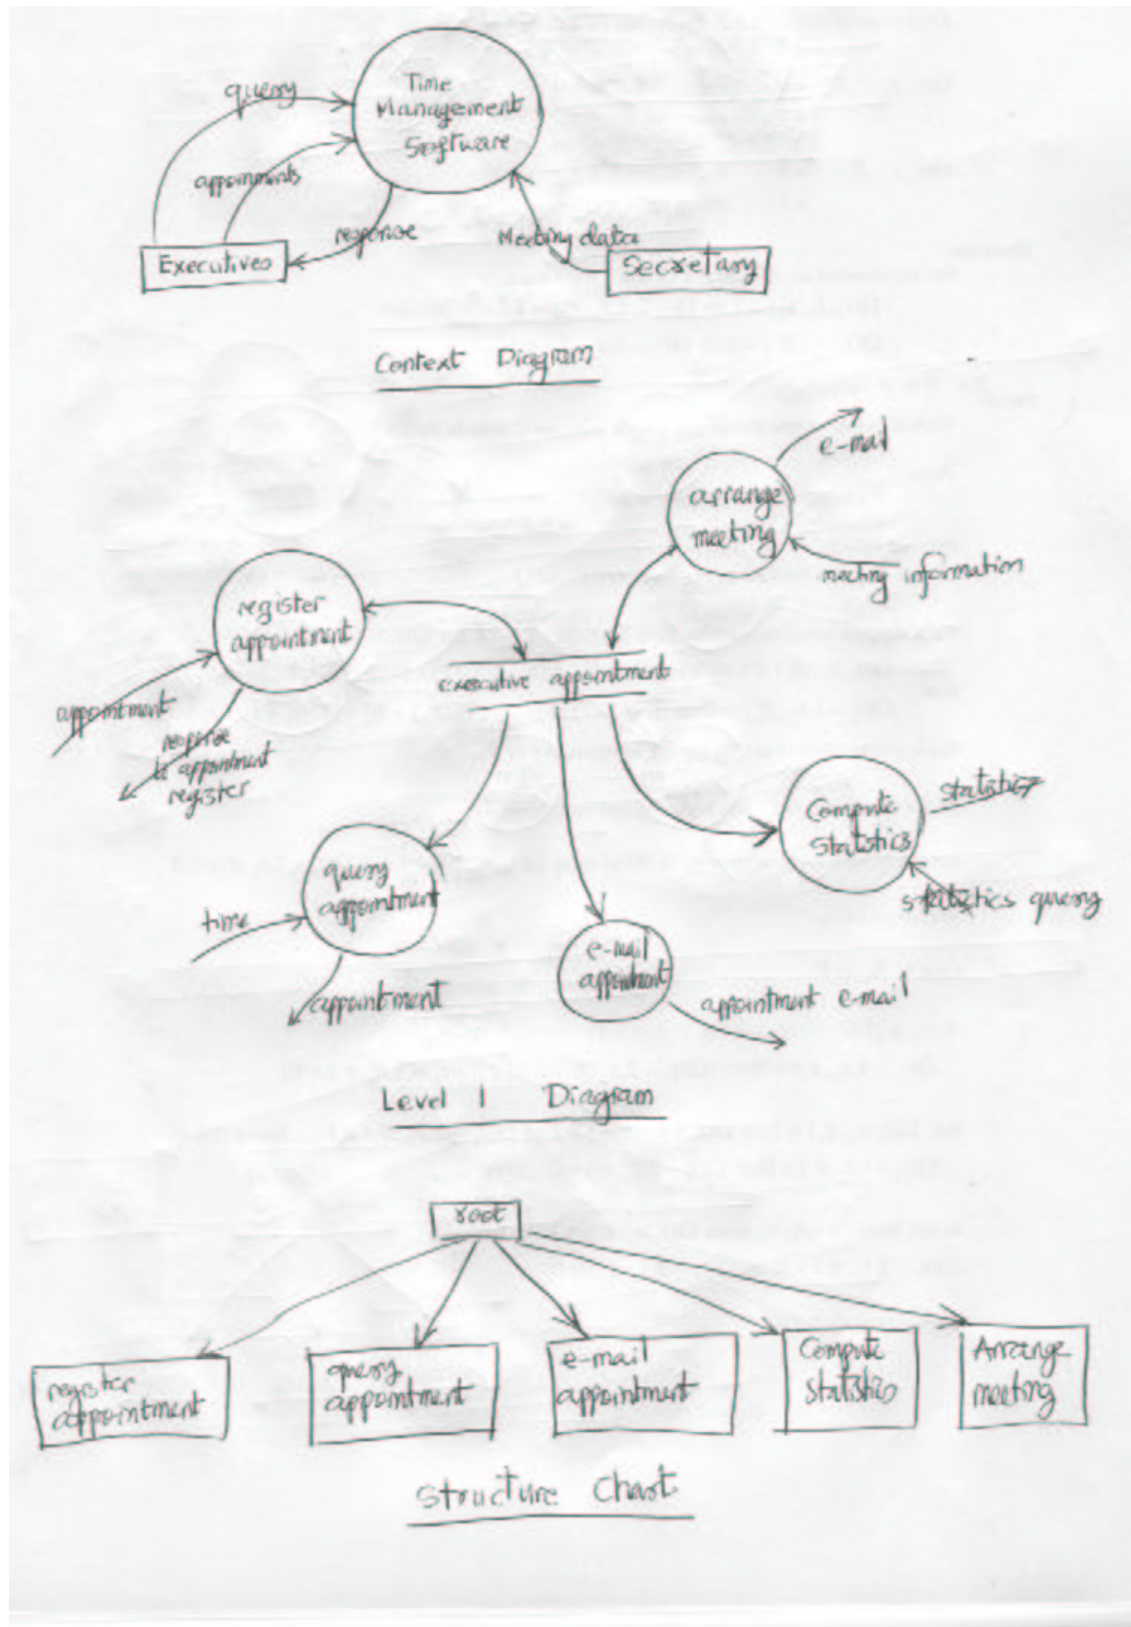 query
Time
Management
Software
appoinments
response
Meeting data
Executives
Secretary
Context Diagram
e-mail
arrange
meeting
meeting information
register
appointment
executive appointment
appointment
response
to appointment
register
Compute
Statistics
statistics
statistics query
query
appointment
time
appointment
e-mail
appointment
appointment e-mail
Level 1 Diagram
root
register
appointment
query
appointment
e-mail
appointment
Compute
Statistics
Arrange
meeting
Structure Chart